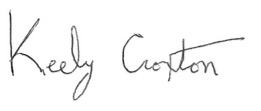 Keely Croxton